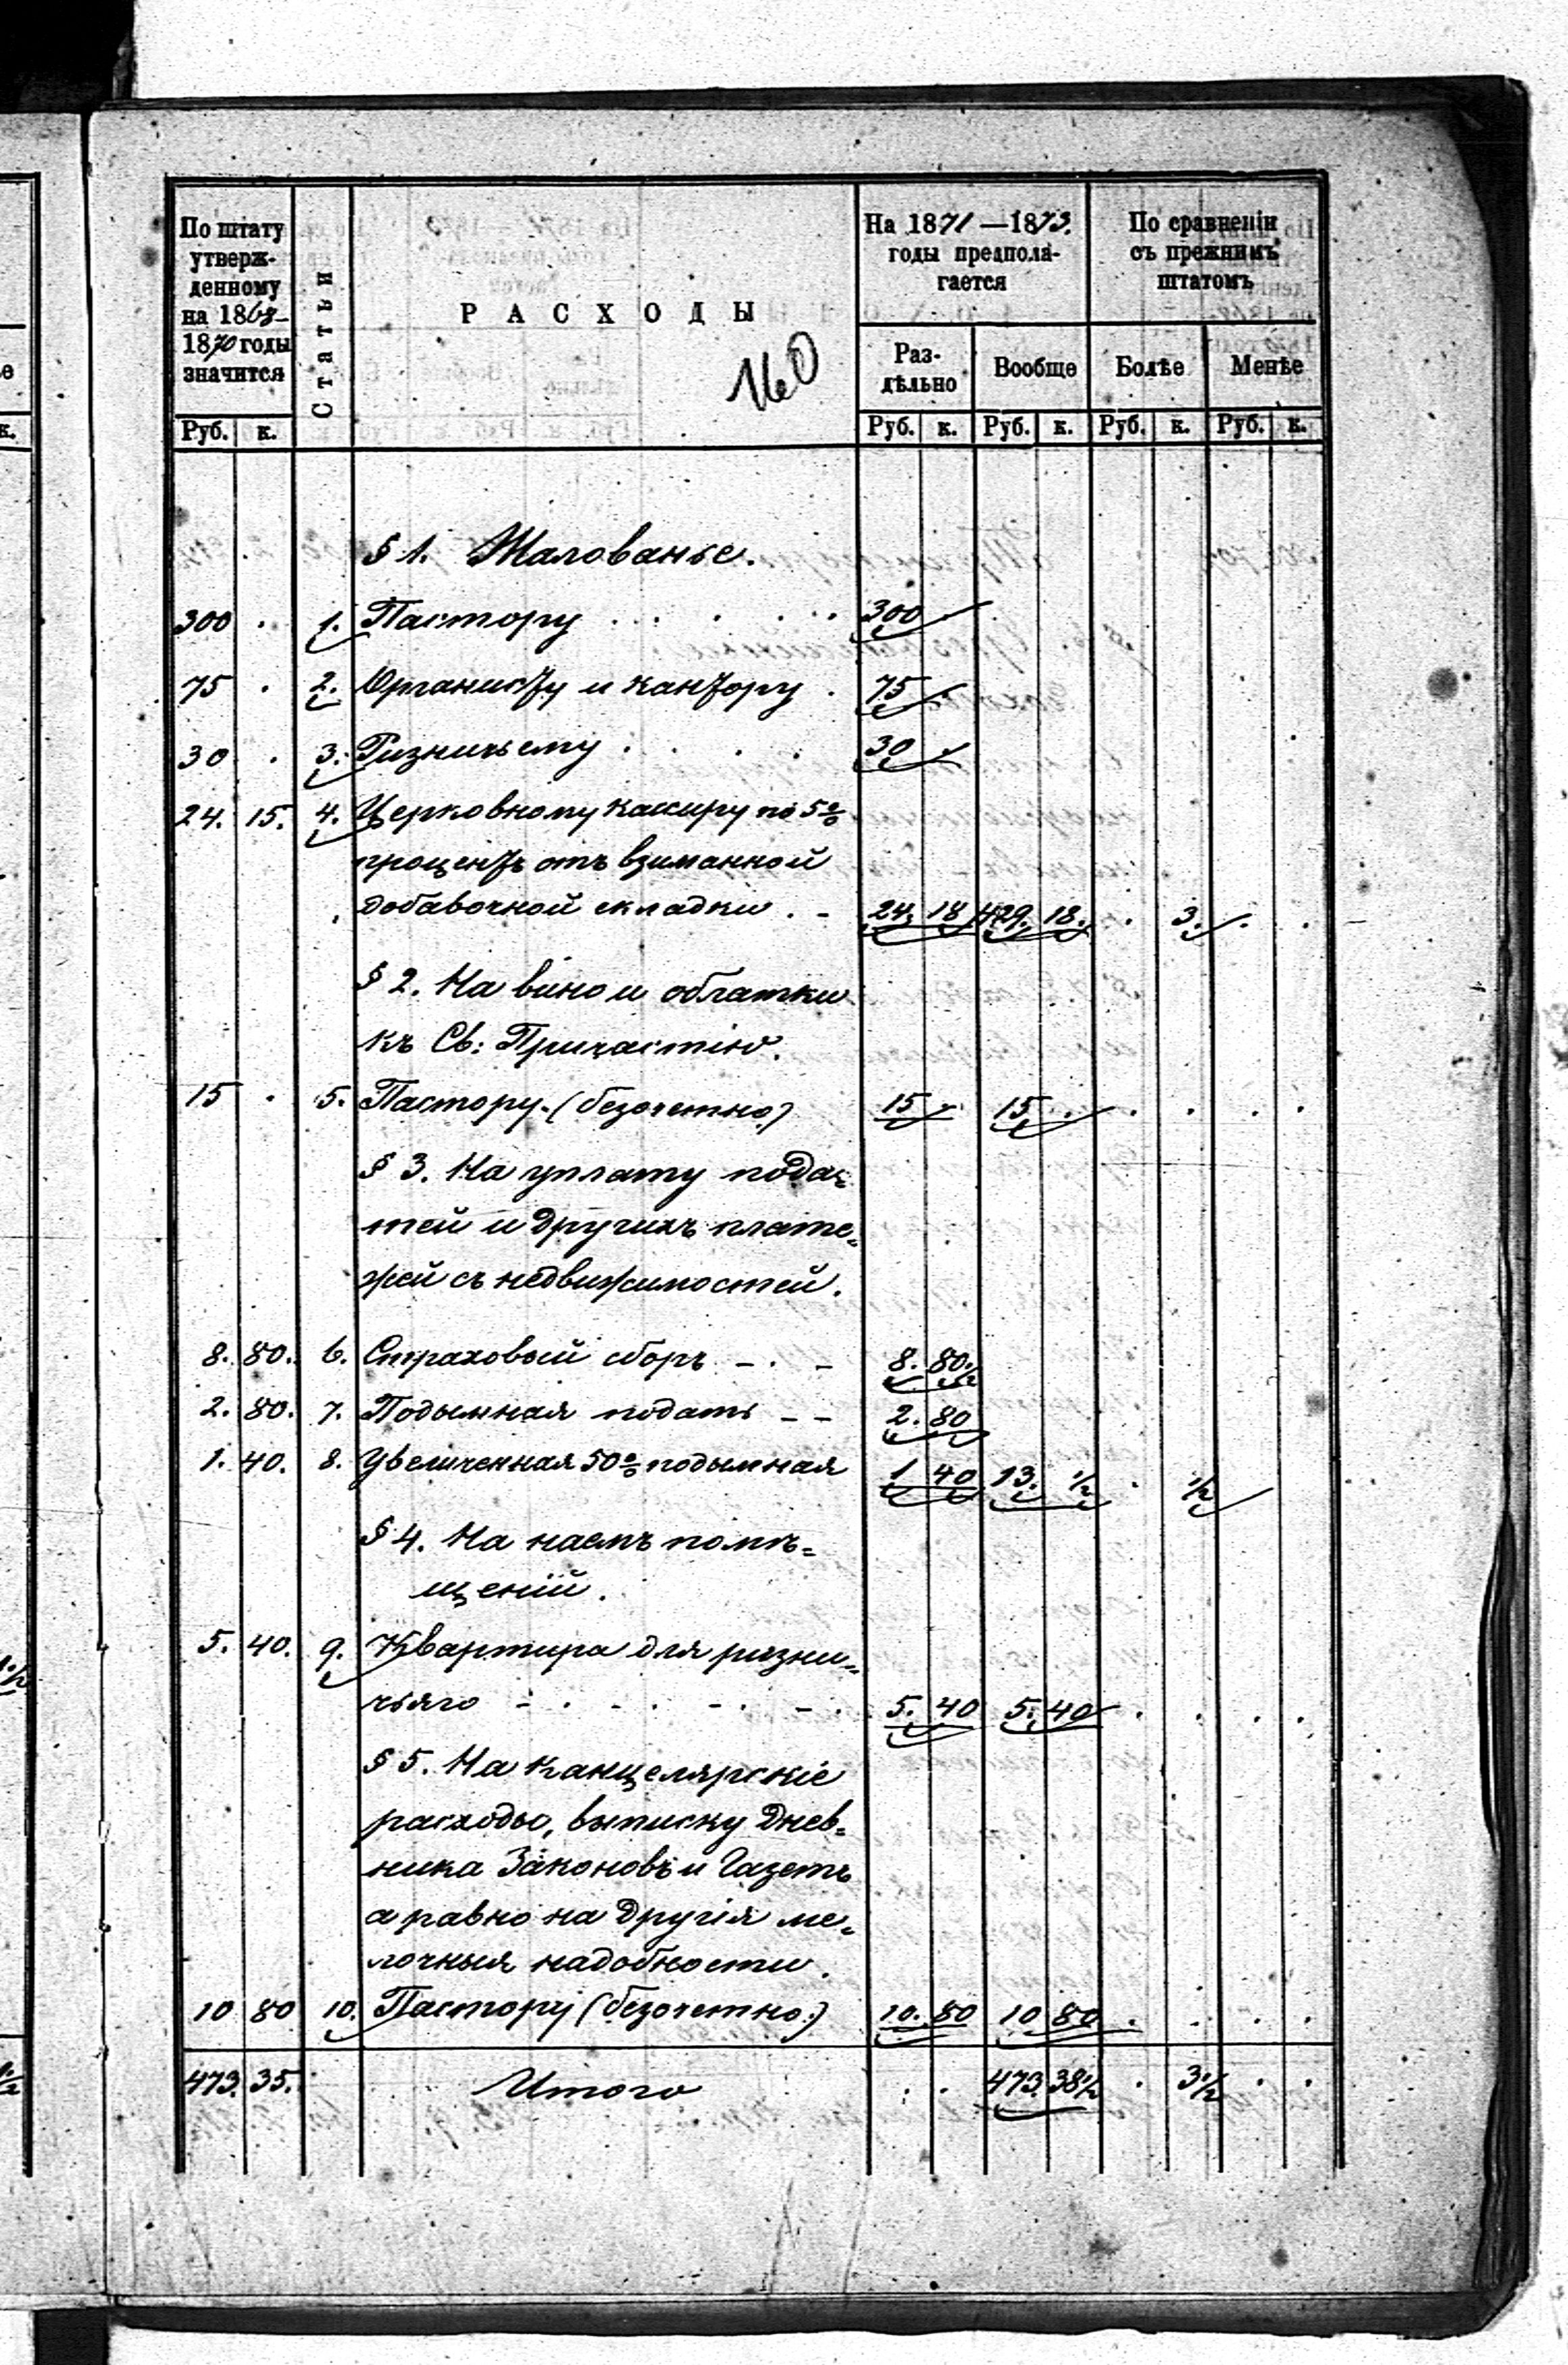 По штату утверж-денному на 1868-1870 годы значится | Статьи | РАСХОДЫ | На 1871—1873. годы предпола-гается | По сравненiи съ прежнимъ штатомъ
160
Раз-дѣльно | Вообще | Болѣе | Менѣе
Руб. | к. | Руб. | к. | Руб. | к. | Руб. | к. | Руб. | к.
§ 1. Жалованье.
300 . 1. Пастору . . . . . 300
75 . 2. Органисту и кантору . 75
30 . 3. Ризничьему . . . . 30
24. 15. 4. Церковному кассиру по 5%
процентъ отъ взиманной
добавочной складки . - 24. 18 429. 18. . 3. . .
§ 2. На вино и облатки
къ Св: Причастiю.
15 . 5. Пастору. (безочетно) 15 15 . . . . .
§ 3. На уплату пода=
тей и другихъ плате=
жей съ недвижимостей.
8. 80. 6. Страховый сборъ - . - 8. 80.½
2. 80. 7. Подымная подать - - 2. 80
1. 40. 8. Увеличенная 50% подымная 1 40 13. ½ . ½
§ 4. На наемъ помѣ=
щенiй.
5. 40. 9. Квартира для ризни=
чьяго - . - . - . - . 5. 40 5. 40 . . . .
§ 5. На канцелярскiе
расходы, выписку Днев=
ника Законовъ и Газетъ
а равно на другiя ме=
лочныя надобности.
10 80 10. Пастору (безочетно) 10. 80 10 80 . . . .
473. 35. Итого . . 473. 38½ . 3½ . .